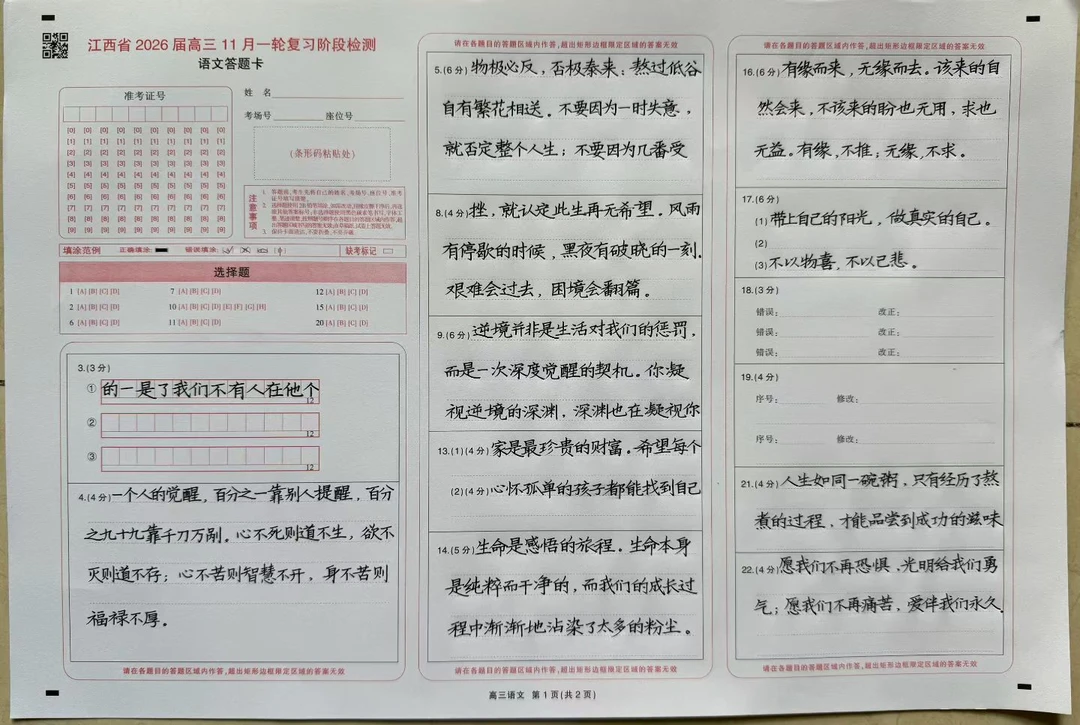 江西省 2026 届高三 11 月一轮复习阶段检测
语文答题卡
准考证号
[0] [0] [0] [0] [0] [0] [0] [0] [0]
[1] [1] [1] [1] [1] [1] [1] [1] [1]
[2] [2] [2] [2] [2] [2] [2] [2] [2]
[3] [3] [3] [3] [3] [3] [3] [3] [3]
[4] [4] [4] [4] [4] [4] [4] [4] [4]
[5] [5] [5] [5] [5] [5] [5] [5] [5]
[6] [6] [6] [6] [6] [6] [6] [6] [6]
[7] [7] [7] [7] [7] [7] [7] [7] [7]
[8] [8] [8] [8] [8] [8] [8] [8] [8]
[9] [9] [9] [9] [9] [9] [9] [9] [9]
姓 名
考场号 座位号
(条形码粘贴处)
注意事项
填涂范例 正确填涂: 错误填涂: 缺考标记
选择题
1 [A] [B] [C] [D] 7 [A] [B] [C] [D] 12 [A] [B] [C] [D]
2 [A] [B] [C] [D] 10 [A] [B] [C] [D] [E] [F] [G] [H] 15 [A] [B] [C] [D]
6 [A] [B] [C] [D] 11 [A] [B] [C] [D] 20 [A] [B] [C] [D]
3.(3分)
① 的一是了我们不有人在他个
12
②
12
③
12
4.(4分)一个人的觉醒,百分之一靠别人提醒,百分
之九十九靠千刀万剐。心不死则道不生,欲不
灭则道不存;心不苦则智慧不开,身不苦则
福禄不厚。
请在各题目的答题区域内作答,超出矩形边框限定区域的答案无效
请在各题目的答题区域内作答,超出矩形边框限定区域的答案无效
5.(6分)物极必反,否极泰来;熬过低谷
自有繁花相送。不要因为一时失意,
就否定整个人生;不要因为几番受
8.(4分)挫,就认定此生再无希望。风雨
有停歇的时候,黑夜有破晓的一刻.
艰难会过去,困境会翻篇。
9.(6分)逆境并非是生活对我们的惩罚,
而是一次深度觉醒的契机。你凝
视逆境的深渊,深渊也在凝视你
13.(1)(4分)家是最珍贵的财富。希望每个
(2)(4分)心怀孤单的孩子都能找到自己
14.(5分)生命是感悟的旅程。生命本身
是纯粹而干净的,而我们的成长过
程中渐渐地沾染了太多的粉尘。
请在各题目的答题区域内作答,超出矩形边框限定区域的答案无效
高三语文 第1页(共2页)
请在各题目的答题区域内作答,超出矩形边框限定区域的答案无效
16.(6分)有缘而来,无缘而去。该来的自
然会来,不该来的盼也无用,求也
无益。有缘,不推;无缘,不求。
17.(6分)
(1)带上自己的阳光,做真实的自己。
(2)
(3)不以物喜,不以己悲。
18.(3分)
错误: 改正:
错误: 改正:
错误: 改正:
19.(4分)
序号: 修改:
序号: 修改:
21.(4分)人生如同一碗粥,只有经历了熬
煮的过程,才能品尝到成功的滋味
22.(4分)愿我们不再恐惧,光明给我们勇
气;愿我们不再痛苦,爱伴我们永久.
请在各题目的答题区域内作答,超出矩形边框限定区域的答案无效